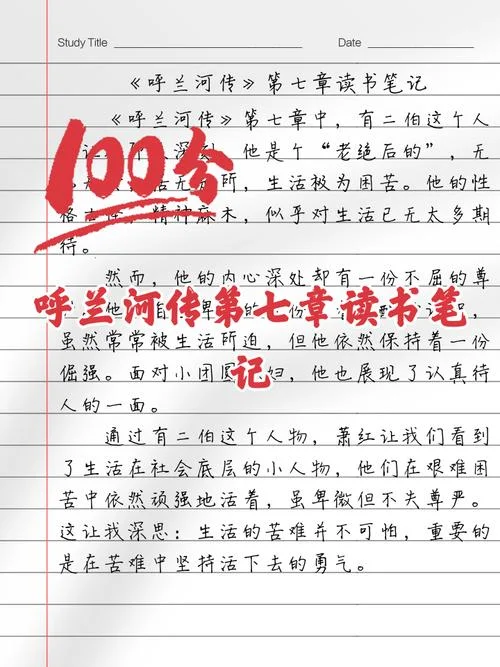 Study Title Date
《呼兰河传》第七章读书笔记
《呼兰河传》第七章中，有二伯这个人
他是个“老绝后的”，无
所，生活极为困苦。他的性
精神麻木，似乎对生活已无太多期
待。
100分
然而，他的内心深处却有一份不屈的尊
呼兰河传第七章读书笔
记
虽然常常被生活所迫，但他依然保持着一份
倔强。面对小团圆媳妇，他也展现了认真待
人的一面。
通过有二伯这个人物，萧红让我们看到
了生活在社会底层的小人物，他们在艰难困
苦中依然顽强地活着，虽卑微但不失尊严。
这让我深思：生活的苦难并不可怕，重要的
是在苦难中坚持活下去的勇气。